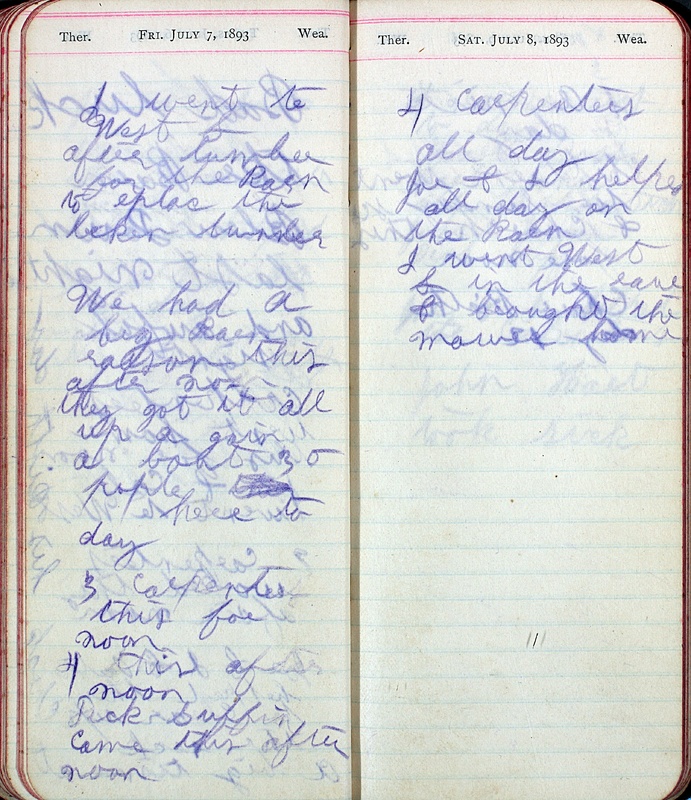 Ther. FRI. JULY 7, 1893 Wea.
I went to
West
after lumber
for the Raen
to eplac the
lumber
We had a
big Raen
reason this
after noon
they got it all
up a gain
a bout 30
pople
here to
day
3 Carpenters
this foe
noon
4 this after
noon
came this after
noon
Ther. SAT. JULY 8, 1893 Wea.
4 Carpenters
all day
Joe & I helped
all day on
the Raen
I went West
& in the eave
& brought the
home
John
took sick